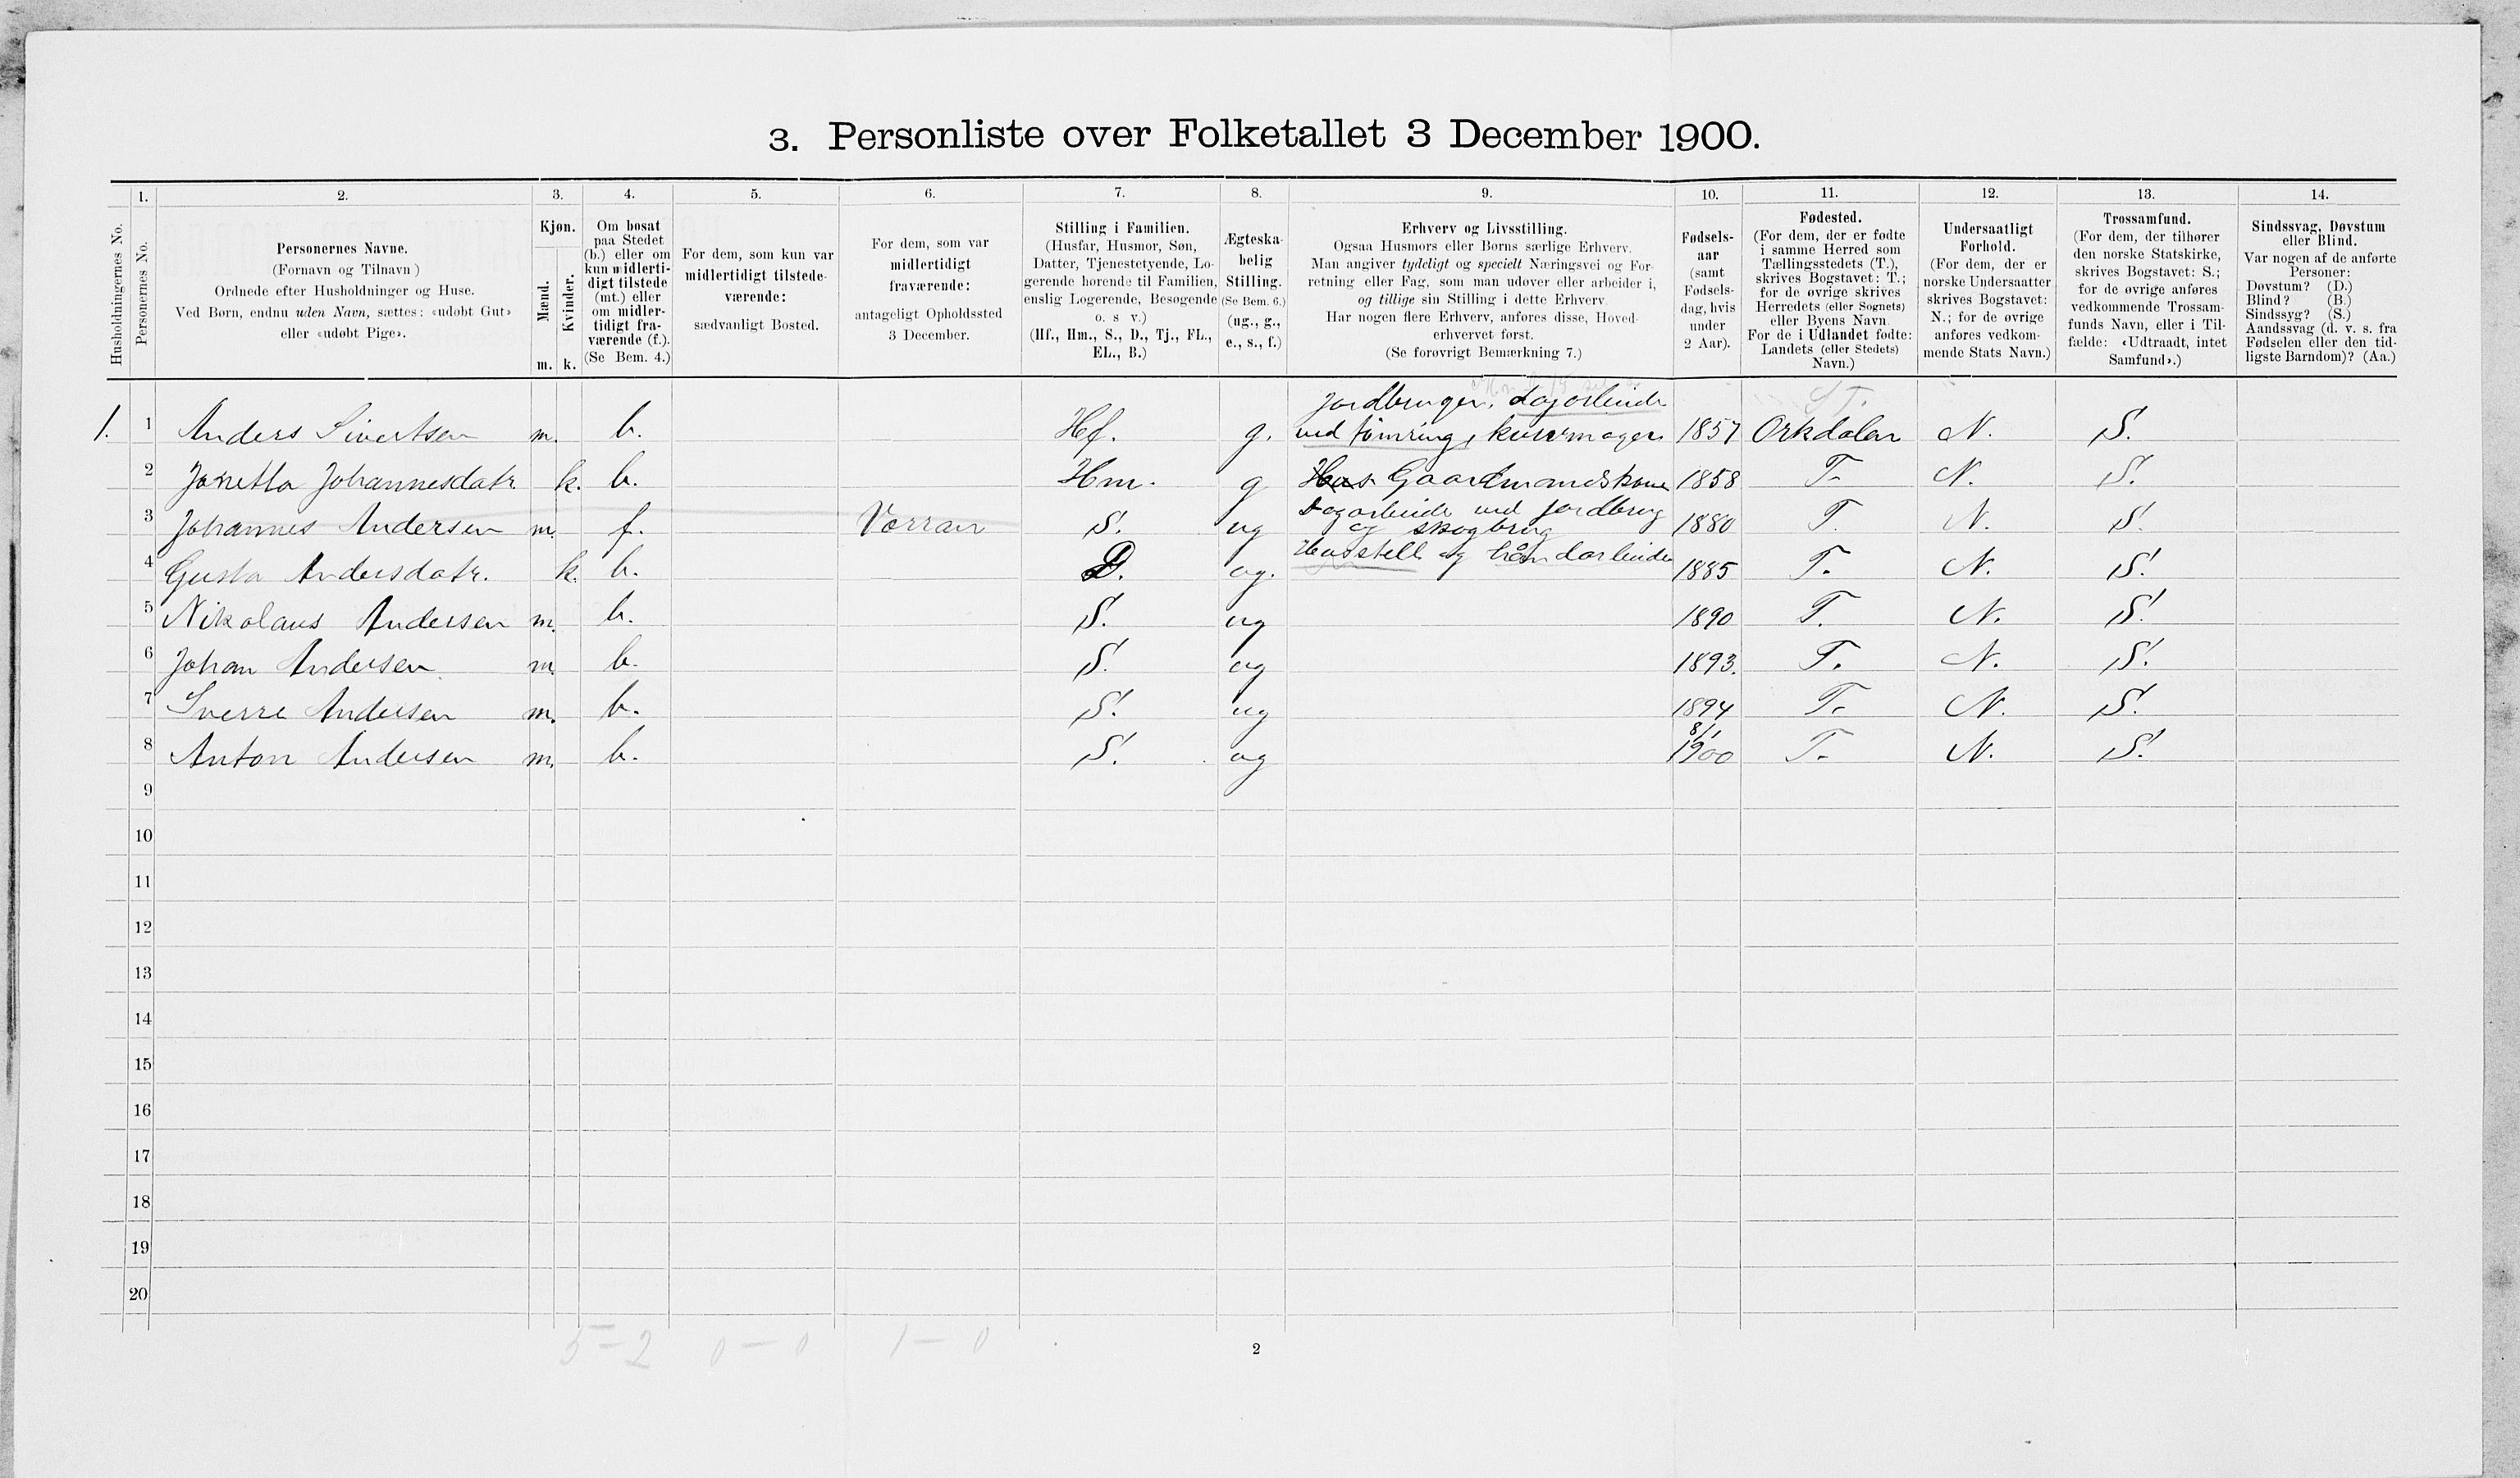 3. Personliste over Folketallet 3 December 1900.
Husholdningernes No.
1.
Personernes No.
2.
Personernes Navne.
(Fornavn og Tilnavn )
Ordnede efter Husholdninger og Huse.
Ved Børn, endnu uden Navn, sættes: «udøbt Gut»
eller «udøbt Pige».
3.
Kjøn.
Mænd.
Kvinder.
m. k.
4.
Om bosat
paa Stedet
(b.) eller om
kun midlerti-
digt tilstede
(mt.) eller
om midler-
tidigt fra-
værende (f.).
(Se Bem. 4.)
5.
For dem, som kun var
midlertidigt tilstede-
værende:
sædvanligt Bosted.
6.
For dem, som var
midlertidigt
fraværende:
antageligt Opholdssted
3 December.
7.
Stilling i Familien.
(Husfar, Husmor, Søn,
Datter, Tjenestetyende, Lo-
gerende hørende til Familien,
enslig Logerende, Besøgende
o. s v.)
(Hf., Hm., S., D., Tj., FL.,
EL., B.)
8.
Ægteska-
belig
Stilling.
(Se Bem. 6.)
(ug., g.,
e., s., f.)
9.
Erhverv og Livsstilling.
Ogsaa Husmors eller Børns særlige Erhverv.
Man angiver tydeligt og specielt Næringsvei og For-
retning eller Fag, som man udøver eller arbeider i,
og tillige sin Stilling i dette Erhverv.
Har nogen flere Erhverv, anføres disse, Hoved-
erhvervet først.
(Se forøvrigt Bemærkning 7.)
10.
Fødsels-
aar
(samt
Fødsels-
dag, hvis
under
2 Aar).
11.
Fødested.
(For dem, der er fødte
i samme Herred som
Tællingsstedets (T.),
skrives Bogstavet: T.;
for de øvrige skrives
Herredets (eller Sognets)
eller Byens Navn.
For de i Udlandet fødte:
Landets (eller Stedets)
Navn.)
12.
Undersaatligt
Forhold.
(For dem, der er
norske Undersaatter
skrives Bogstavet:
N.; for de øvrige
anføres vedkom-
mende Stats Navn.)
13.
Trossamfund.
(For dem, der tilhører
den norske Statskirke,
skrives Bogstavet: S.;
for de øvrige anføres
vedkommende Trossam-
funds Navn, eller i Til-
fælde: «Udtraadt, intet
Samfund».)
14.
Sindssvag, Døvstum
eller Blind.
Var nogen af de anførte
Personer:
Døvstum? (D.)
Blind? (B.)
Sindssyg? (S.)
Aandssvag (d. v. s. fra
Fødselen eller den tid-
ligste Barndom)? (Aa.)
Jordbruger, dagarbeide
1. 1 Anders Sivertsen m. b. Hf. g. ved tømring, 1857 Orkdalen N. S.
2 Jonetta Johannesdatr. k. b. Hm. g Gaardmandskone 1858 T. N. S.
Dagarbeide ved jordbrug
3 Johannes Andersen m. f. Verran S. ug og skogbrug 1880 T. N. S.
Husstell og håndarbeide
4 Gusta Andersdatr. k. b. D. ug. 1885 T. N. S.
5 Nikolaus Andersen m. b. S. ug 1890 T. N. S.
6 Johan Andersen m. b. S. ug 1893. T. N. S.
7 Sverre Andersen m. b. S. ug 1894 T. N. S.
8/1
8 Anton Andersen m. b. S. ug 1900 T. N. S.
9
10
11
12
13
14
15
16
17
18
19
20
5–2 0–0 1–0
2